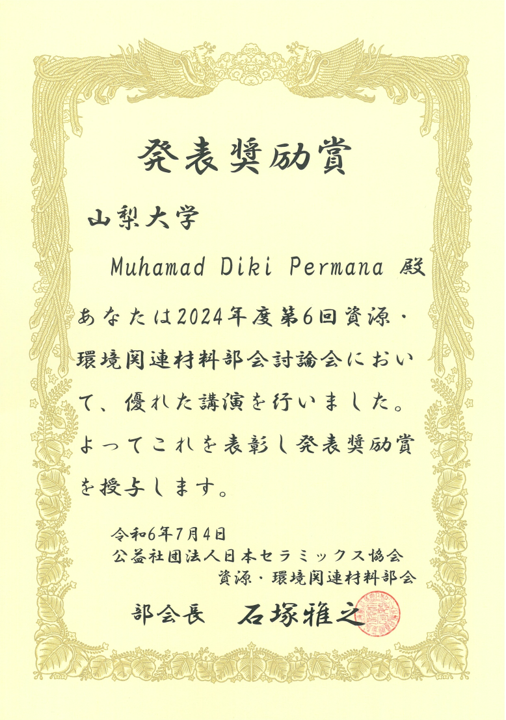 発表奨励賞
山梨大学
Muhamad Diki Permana 殿
あなたは2024年度第6回資源・
環境関連材料部会討論会におい
て、優れた講演を行いました。
よってこれを表彰し発表奨励賞
を授与します。
令和6年7月4日
公益社団法人日本セラミックス協会
資源・環境関連材料部会
部会長 石塚雅之